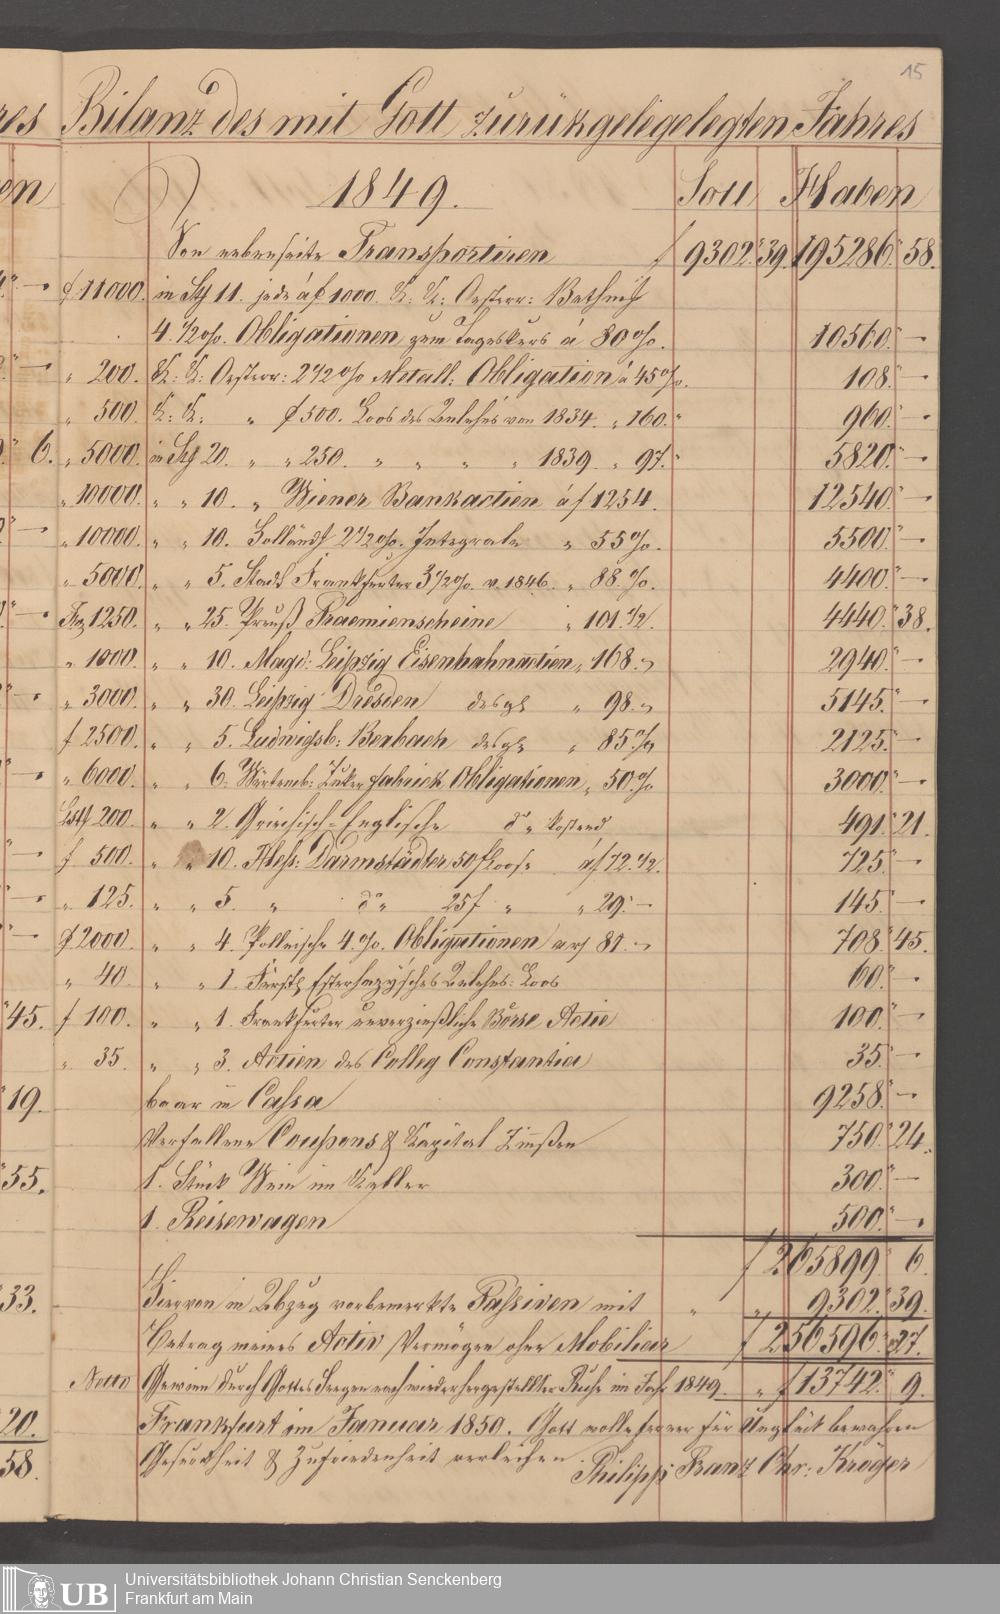 15
Bilanz des mit Gott zurükgeligelegten Jahres
1849. Soll Haben
Von nebenseite Transportiren f 9302." 39. 195286." 58.
f 11000. in Stk 11. jede á f 1000. K: K: Oesterr: Bethm:
4. 1/2 o/o. Obligationen zum Tageskurs á 80 o/o. 10560." —
" 200. K: K: Oesterr: 2 1/2 o/o Metall: Obligation á 45 o/o. 108." —
" 500. K: K: " f 500. Loos des Anlehns von 1834. " 160." 960." —
" 5000. in Stk 20. " " 250. " " " " 1839. " 97." 5820." —
" 10000. " " 10. " Wiener Bankactien á f 1254. 12540." —
" 10000. " " 10. Holländ 2 1/2 o/o. Integrale " 55 o/o. 5500." —
" 5000. " " 5. Stadt Frankfurter 3 1/2 o/o. v. 1846. " 88. o/o. 4400." —
1250. " " 25. Preuß Praemienscheine " 101 1/2. 4440." 38.
" 1000. " " 10. Magd: Leipzig Eisenbahnactien " 168." 2940." —
" 3000. " " 30. Leipzig Dresden desgl " 98." 5145." —
f 2500. " " 5. Ludwigsh: Bexbach desgl " 85 o/o 2125." —
" 6000. " " 6. Würtemb: Zuker fabrick Obligationen " 50 o/o 3000." —
200. " " 2. Griechisch-Englische do " kostend 491." 21.
f 500. " " 10. Hess: Darmstädter 50 f Loose á f 72 1/2. 725." —
" 125. " " 5. " do " 25 f " " 29." — 145." —
f 2000. " " 4. Pollnische 4. o/o. Obligationen a 81." 708." 45.
" 40. " " 1. Fürstl Esterhazy'sches Anlehns: Loos 60." —
f 100. " " 1. Frankfurter unverzinßliche Börse Actie 100." —
" 35. " " 3. Actien des Colleg Constantia 35." —
baar in Cassa 9258." —
Verfallene Coupons & Kapital Zinnßen 750." 24.
1. Stück Wein im Keller 300." —
1. Reisewagen 500." —
f 265899. 6.
Hiervon in Abzug vorbemerkte Passiven mit " " 9302." 39.
Betrag meines Activ Vermögen ohne Mobiliar f 256596." 27.
Netto Gewinn durch Gottes Seegen nach wiederhergestellter Ruhe im Jahr 1849. " f 13742." 9.
Frankfurt im Januar 1850. Gott wolle ferner für Unglück bewahren
Gesundheit & Zufriedenheit verleihen Philipp Franz Chr: Kröger
res
en
6.
45.
19.
55.
33.
20.
58.
UB
Universitätsbibliothek Johann Christian Senckenberg
Frankfurt am Main